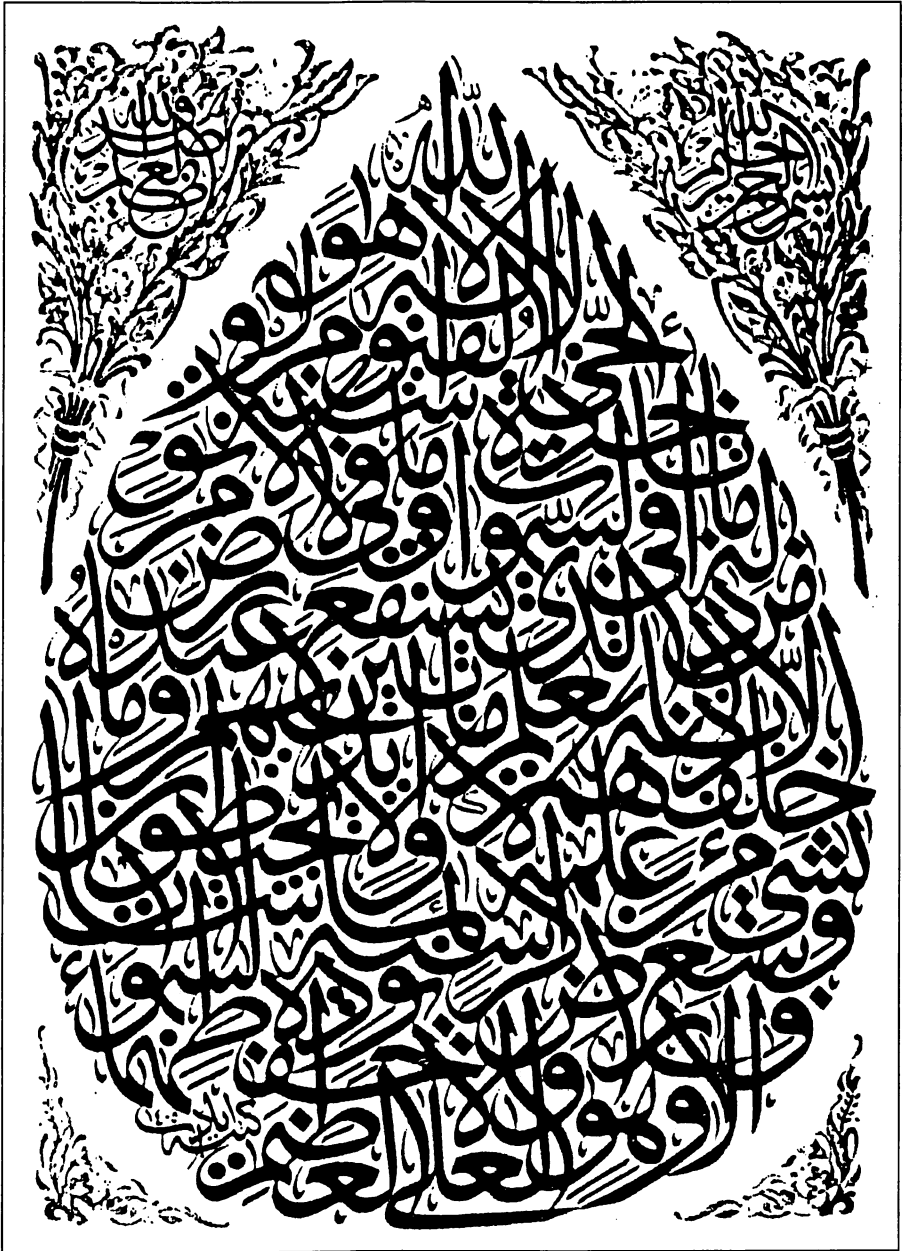 الله
لا إله إلا هو
الحي القيوم لا تأخذه سنة ولا نوم
له ما في السموات وما في الأرض من
ذا الذي يشفع عنده
إلا بإذنه يعلم ما بين أيديهم وما
خلفهم ولا يحيطون
بشيء من علمه إلا بما شاء
وسع كرسيه السموات
والأرض ولا يؤده حفظهما
وهو العلي العظيم